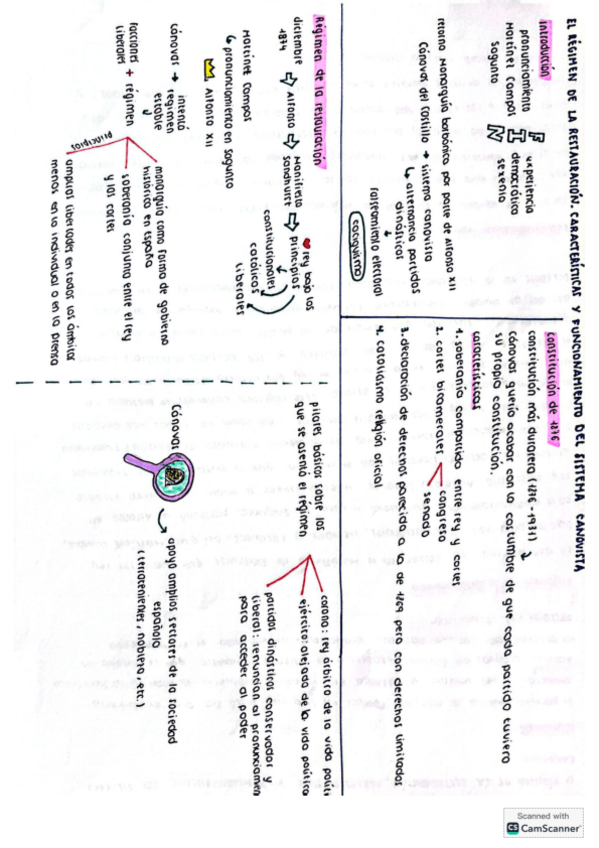 EL RÉGIMEN DE LA RESTAURACIÓN. CARACTERÍSTICAS Y FUNCIONAMIENTO DEL SISTEMA CANOVISTA
Introducción
pronunciamiento
Martínez Campos
Sagunto
FIN
experiencia
democrática
sexenio
retorno Monarquía borbónica por parte de Alfonso XII
Cánovas del Castillo → sistema canovista
↳ alternancia partidos
dinásticos
↓
falseamiento electoral
caciquismo
Régimen de la restauración
diciembre
1874
Alfonso
Manifiesto
Sandhurst
rey bajo los
principios
constitucionales
católicos
liberales
Martínez Campos
↳ pronunciamiento en Sagunto
Alfonso XII
Cánovas →
intentó
régimen
estable
facciones + régimen
liberales
principios
monarquía como forma de gobierno
histórica en España
soberanía conjunta entre el rey
y las cortes
amplias libertades en todos los ámbitos
menos en lo individual o en la prensa
constitución de 1876
constitución más duradera (1876-1931)
Cánovas quería acabar con la costumbre de que cada partido tuviera
su propia constitución.
características
1. soberanía compartida entre rey y cortes
2. cortes bicamerales
congreso
senado
3. declaración de derechos parecida a la de 1869 pero con derechos limitados
4. catolicismo religión oficial
pilares básicos sobre los
que se asenta el régimen
corona: rey árbitro de la vida políti
ejército: alejado de la vida política
partidos dinásticos conservador y
liberal: renuncian al pronunciamien
para acceder al poder
Cánovas
apoyó amplios sectores de la sociedad
española
(terratenientes, nobleza, etc.)
Scanned with
CS CamScanner